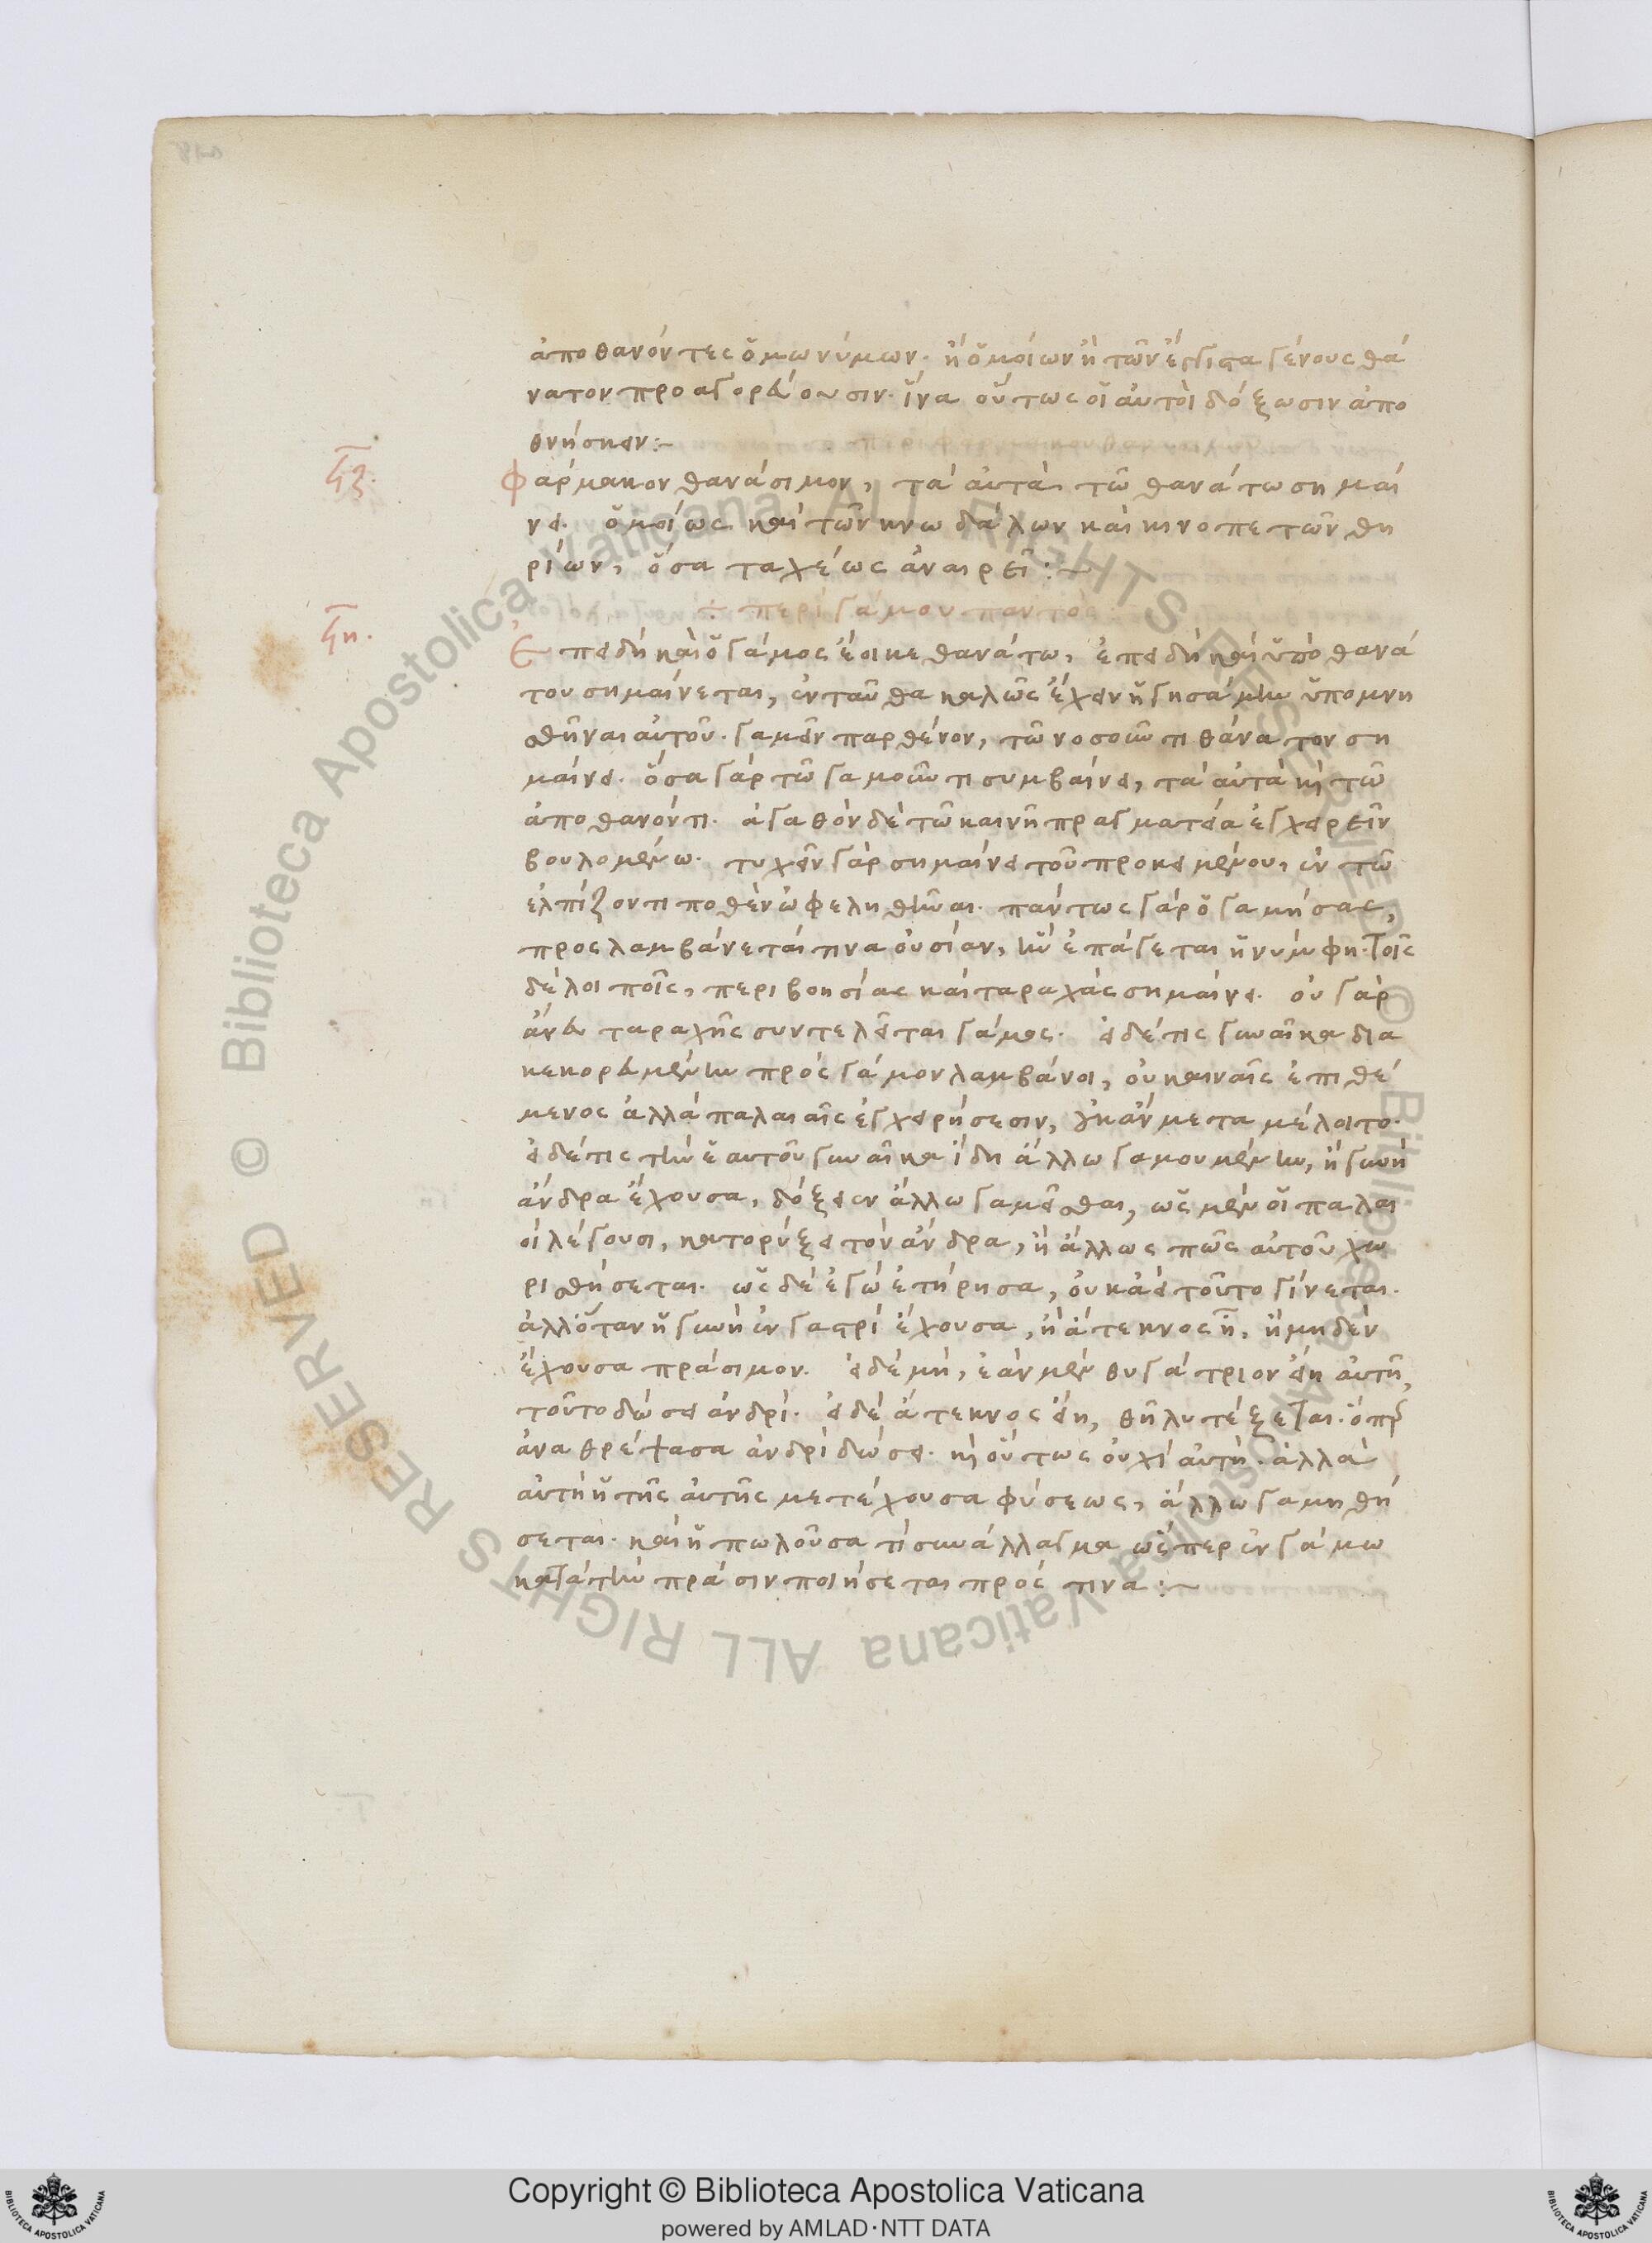 ἀποθανόντες ὁμωνύμων. ἢ ὁμοίων ἢ τῶν ἔγγιστα γένους θά
νατον προαγορεύουσιν. ἵνα οὕτως οἱ αὐτοὶ δόξωσιν ἀπο
θνήσκειν:~
ϟζ. Φάρμακον θανάσιμον, τὰ αὐτὰ τῶ θανάτω σημαί
νει. ὁμοίως καὶ τῶν κνωδάλων καὶ κινοπετῶν θη
ρίων, ὅσα ταχέως ἀναιρεῖ:~
÷ περὶ γάμου παντός
ϟη. Ἐπειδὴ καὶ ὁ γάμος ἔοικε θανάτω, ἐπειδὴ καὶ ὑπὸ θανά
του σημαίνεται, ἐνταῦθα καλῶς ἔχειν ἡγησάμην ὑπομνη
σθῆναι αὐτοῦ. γαμεῖν παρθένον, τῶ νοσοῦντι θάνατον ση
μαίνει. ὅσα γὰρ τῶ γαμοῦντι συμβαίνει, τὰ αὐτὰ καὶ τῶ
ἀποθανόντι. ἀγαθὸν δὲ τῶ καινῆ πραγματεία ἐγχειρεῖν
βουλομένω. τυχεῖν γὰρ σημαίνει τοῦ προκειμένου, ἐν τῶ
ἐλπίζοντι ποθὲν ὠφεληθῆναι. πάντως γὰρ ὁ γαμήσας,
προσλαμβάνεταί τινα οὐσίαν, ἣν ἐπάγεται ἡ νύμφη. τοῖς
δὲ λοιποῖς, περιβοησίας καὶ ταραχὰς σημαίνει. οὐ γὰρ
ἄνευ ταραχῆς συντελεῖται γάμος. εἰ δέ τις γυναῖκα δια
κεκορευμένην πρὸς γάμον λαμβάνοι, οὐ καιναῖς ἐπιθέ
μενος ἀλλὰ παλαιαῖς ἐγχειρήσεσιν, οὐκ ἂν μεταμέλοιτο.
εἰ δέ τις τὴν ἑαυτοῦ γυναῖκα ἴδη ἄλλω γαμουμένην, ἢ γυνὴ
ἄνδρα ἔχουσα, δόξειεν ἄλλω γαμεῖσθαι, ὡς μὲν οἱ παλαι
οὶ λέγουσι, κατορύξει τὸν ἄνδρα, ἢ ἄλλως πῶς αὐτοῦ χω
ρισθήσεται. ὡς δὲ ἐγὼ ἐτήρησα, οὐκ ἀεὶ τοῦτο γίνεται.
ἀλλ' ὅταν ἡ γυνὴ ἐν γαστρὶ ἔχουσα, ἢ ἄτεκνος ἦ, ἢ μηδὲν
ἔχουσα πράσιμον. εἰ δὲ μὴ, ἐὰν μὲν θυγάτριον εἴη αὐτῆ,
τοῦτο δώσει ἀνδρί. εἰ δὲ ἄτεκνος εἴη, θῆλυ τέξεται. ὅπερ
ἀναθρέψασα ἀνδρὶ δώσει. καὶ οὕτως οὐχὶ αὐτὴ. ἀλλὰ
αὐτὴ ἡ τῆς αὐτῆς μετέχουσα φύσεως, ἄλλω γαμηθή
σεται. καὶ ἡ πωλοῦσα τὶ συνάλλαγμα ὥσπερ ἐν γάμω
κατὰ τὴν πρᾶσιν ποιήσεται πρός τινα:~
© Biblioteca Apostolica Vaticana ALL RIGHTS RESERVED
© Biblioteca Apostolica Vaticana ALL RIGHTS RESERVED
Copyright © Biblioteca Apostolica Vaticana
powered by AMLAD·NTT DATA
BIBLIOTECA APOSTOLICA VATICANA
BIBLIOTECA APOSTOLICA VATICANA